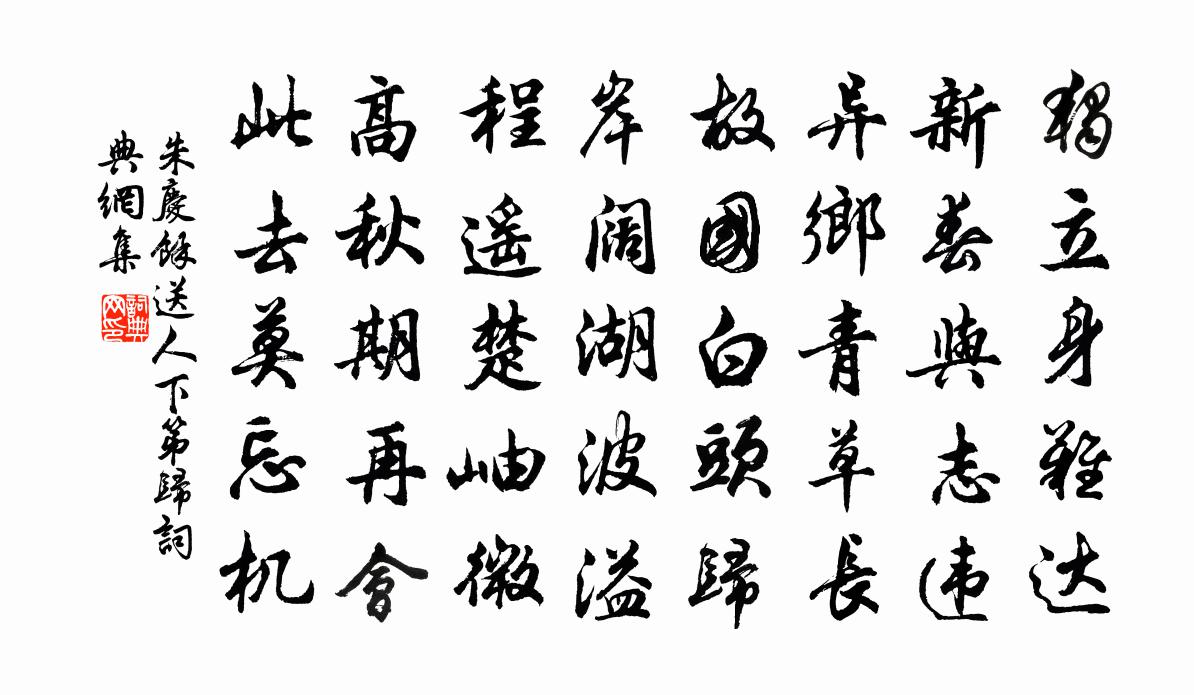 獨立身難达
新春與志违
异鄉青草長
故國白頭歸
岸阔湖波溢
程遥楚岫微
高秋期再會
此去莫忘机
朱慶餘送人下第歸詞
典網集
詞典网印